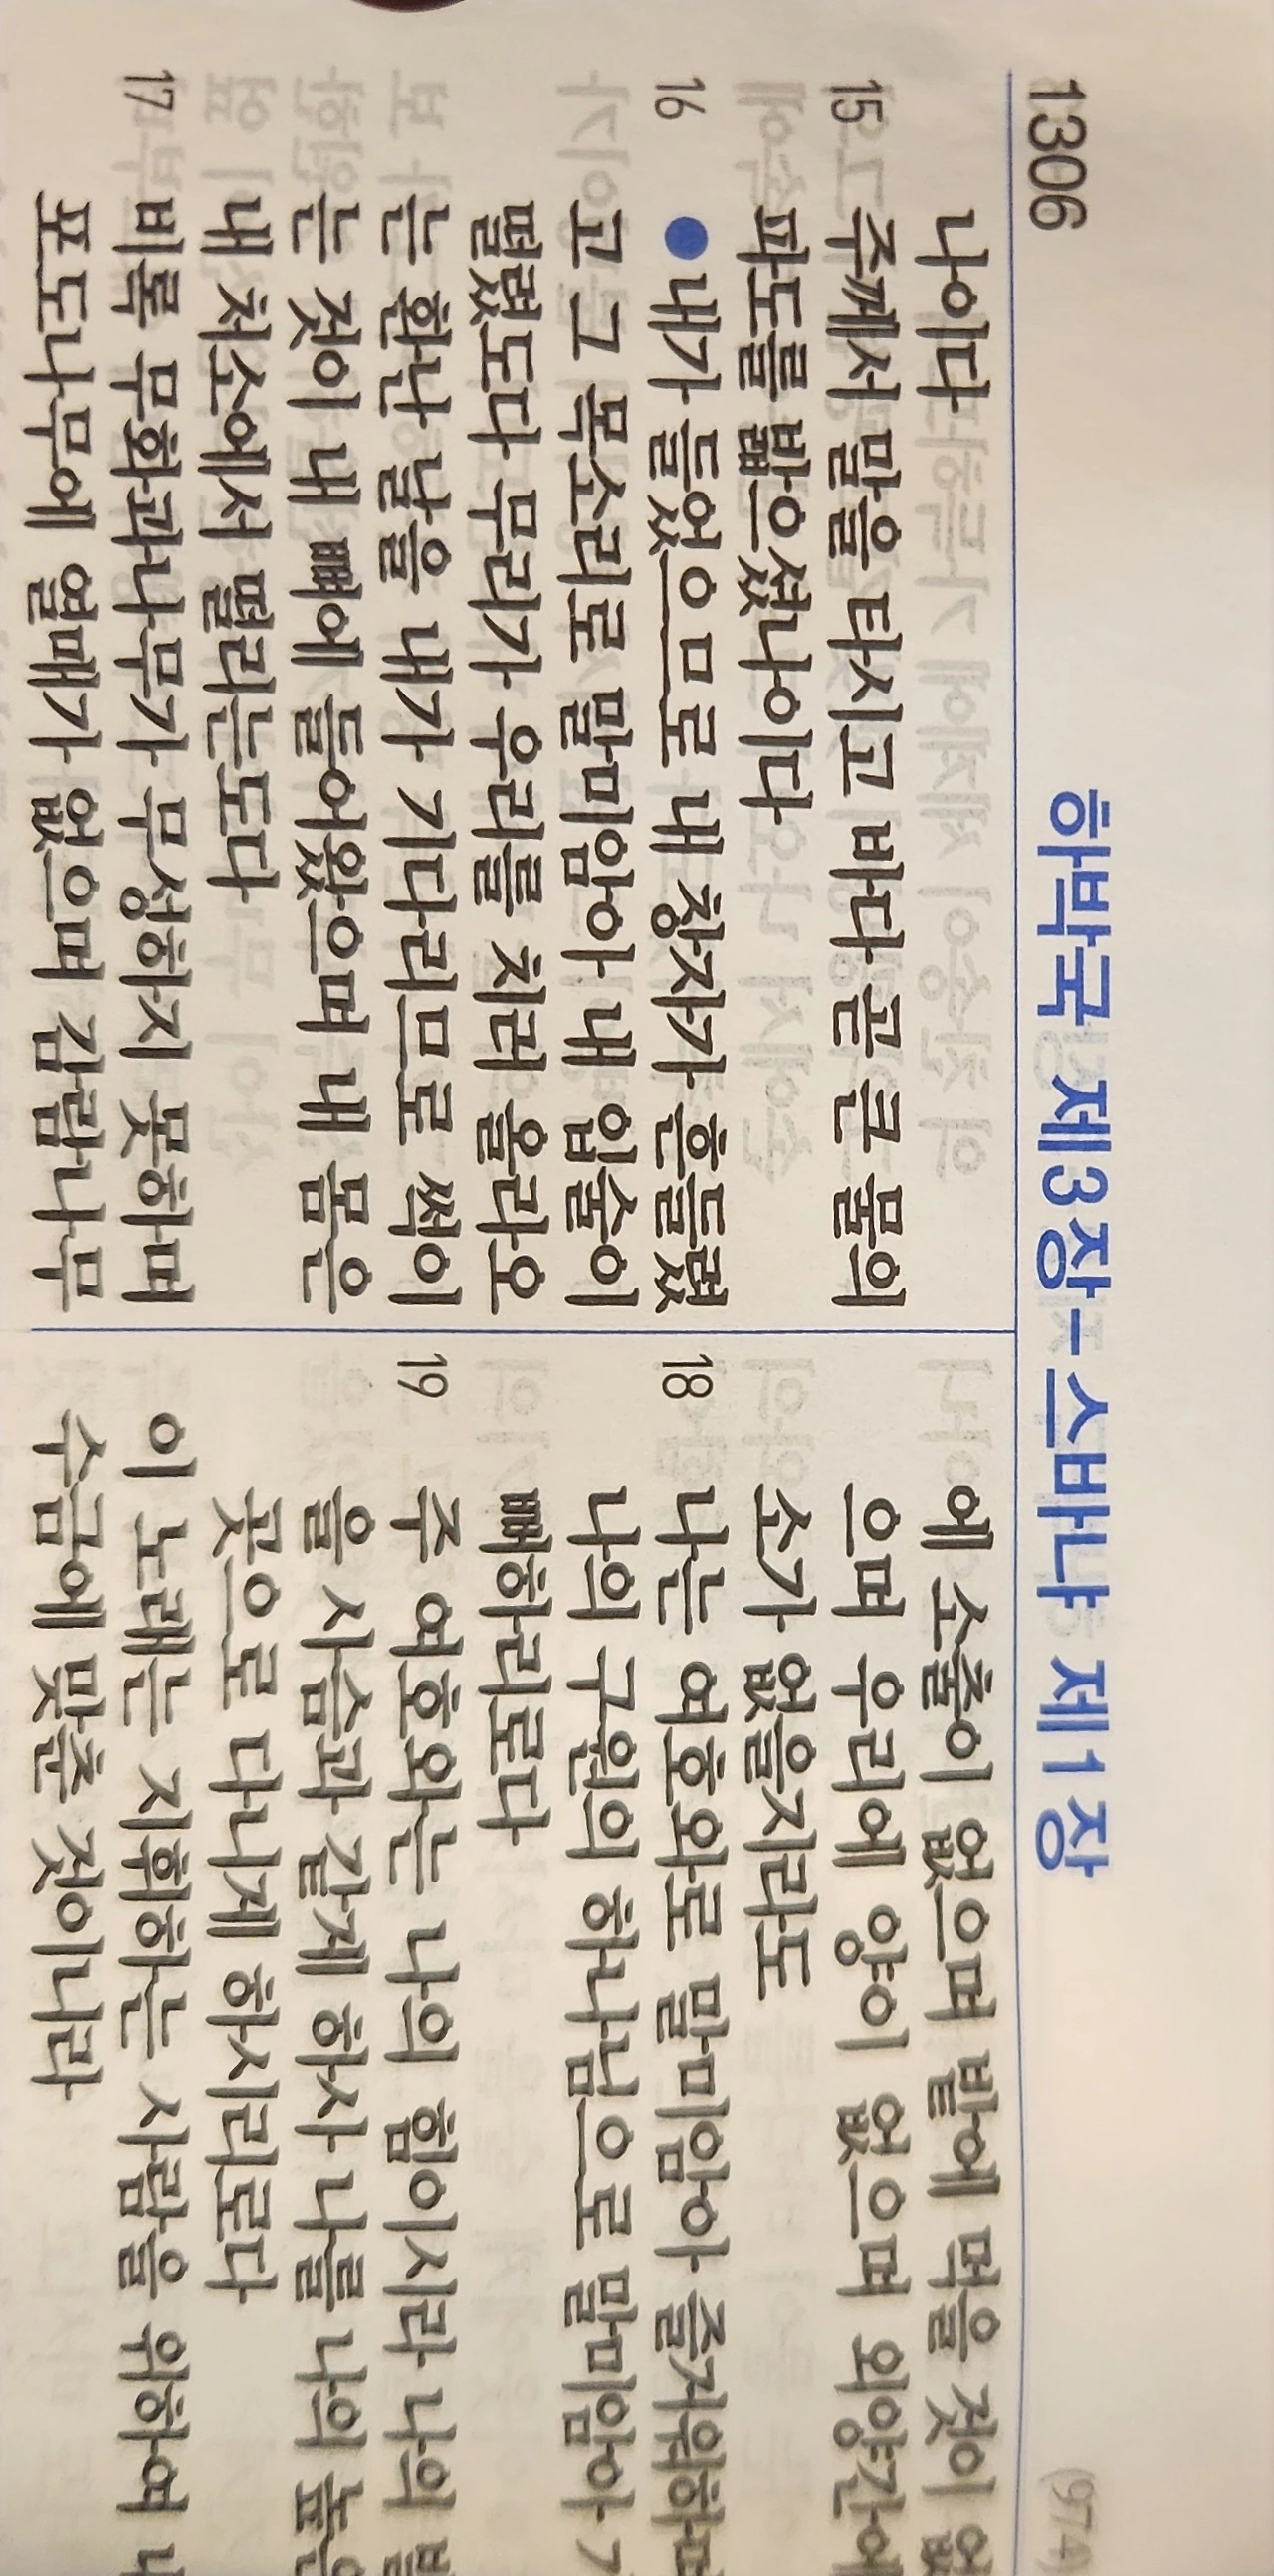 1306
하박국 제3장-스바냐 제1장
(974)
나이다
15 주께서 말을 타시고 바다 곧 큰 물의
파도를 밟으셨나이다
16 ●내가 들었으므로 내 창자가 흔들렸
고 그 목소리로 말미암아 내 입술이
떨렸도다 무리가 우리를 치러 올라오
는 환난 날을 내가 기다리므로 썩이
는 것이 내 뼈에 들어왔으며 내 몸은
내 처소에서 떨리는도다
17 비록 무화과나무가 무성하지 못하며
포도나무에 열매가 없으며 감람나무
에 소출이 없으며 밭에 먹을 것이 없
으며 우리에 양이 없으며 외양간에
소가 없을지라도
18 나는 여호와로 말미암아 즐거워하며
나의 구원의 하나님으로 말미암아
뻐하리로다
19 주 여호와는 나의 힘이시라 나의 발
을 사슴과 같게 하사 나를 나의 높은
곳으로 다니게 하시리로다
이 노래는 지휘하는 사람을 위하여 내
수금에 맞춘 것이니라